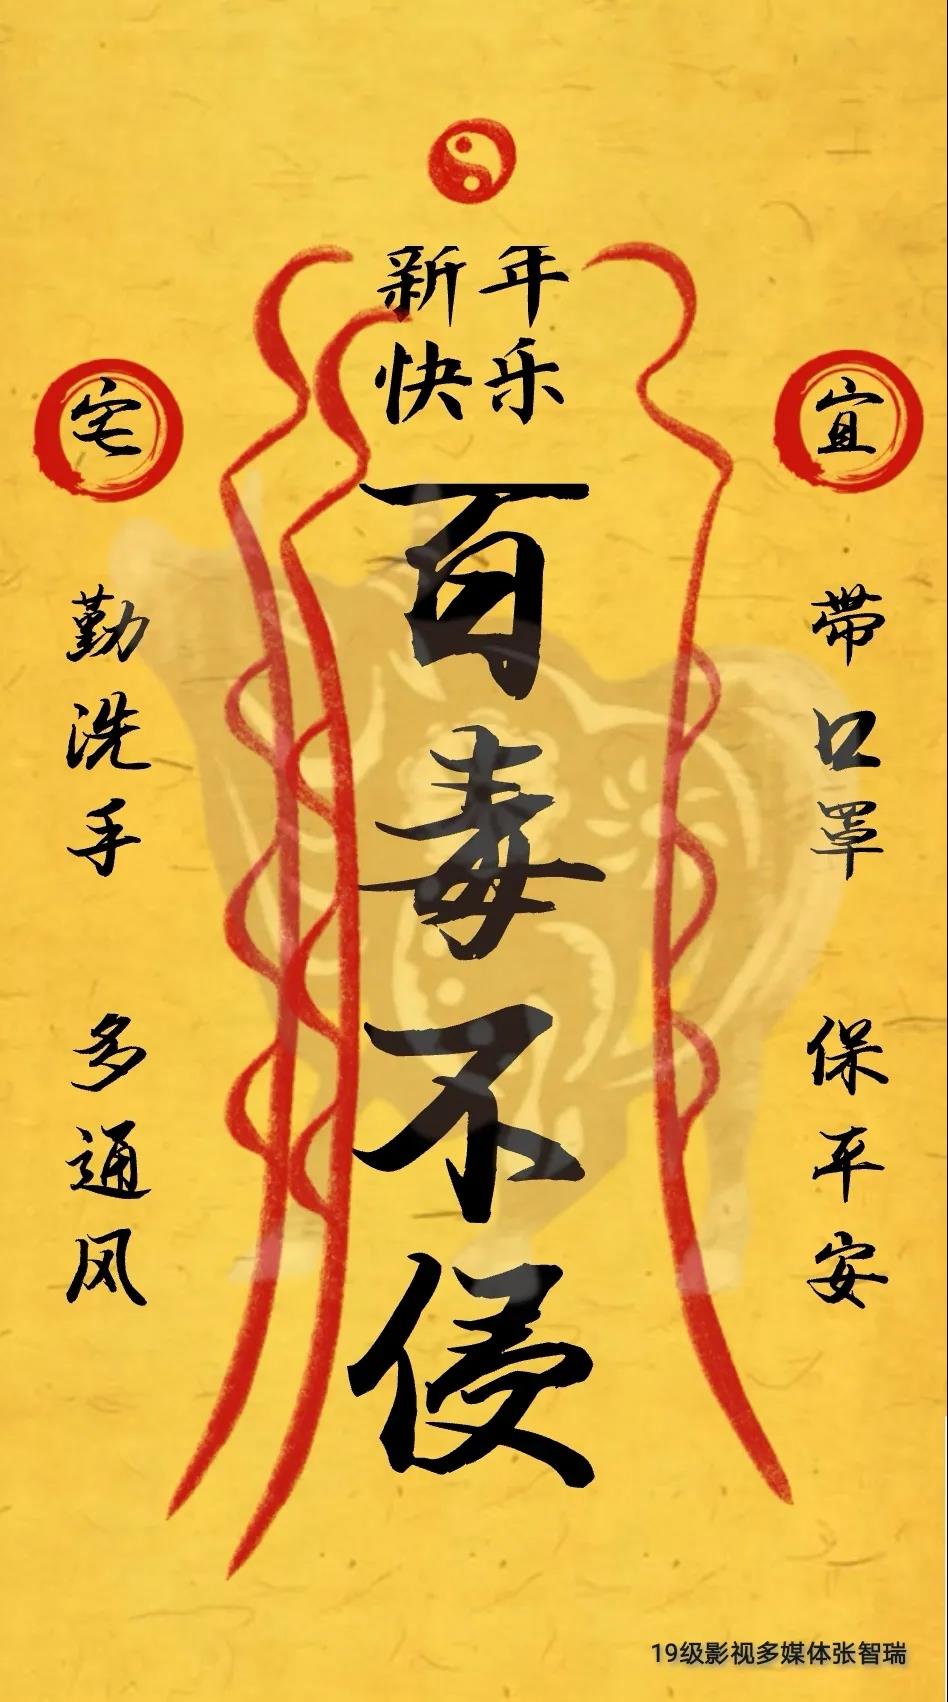 新年
快乐
百毒不侵
宜
宅
带口罩
保平安
勤洗手
多通风
19级影视多媒体张智瑞